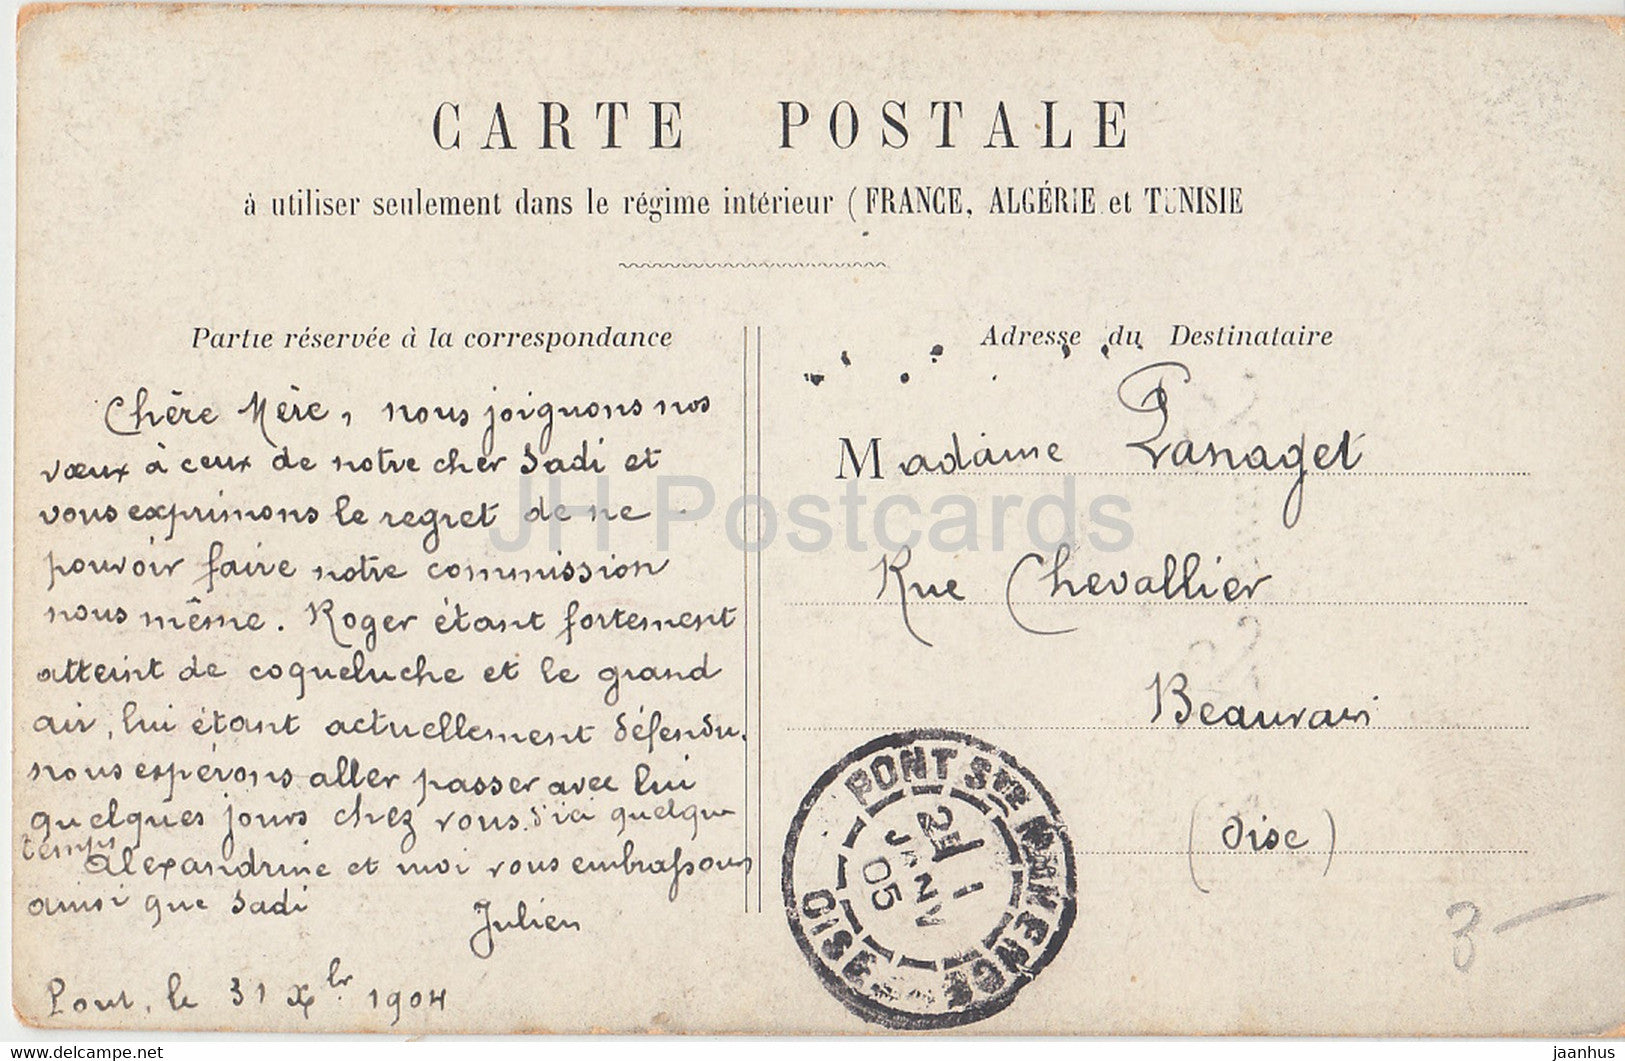 CARTE POSTALE
à utiliser seulement dans le régime intérieur (FRANCE, ALGÉRIE et TUNISIE
Partie réservée à la correspondance
Chère Mère, nous joignons nos
vœux à ceux de notre cher Sadi et
vous exprimons le regret de ne
pouvoir faire notre commission
nous même. Roger étant fortement
atteint de coqueluche et le grand
air, lui étant actuellement défendu.
nous espérons aller passer avec lui
quelques jours chez vous d'ici quelque
temps
Alexandrine et moi vous embrassons
ainsi que Sadi
Julien
Pont, le 31 Xbr 1904
Adresse du Destinataire
Madame Panaget
Rue Chevallier
Beauvais
(Oise)
PONT STE MAXENCE
2E
1
JANV
05
OISE
3-
JH Postcards
www.delcampe.net
jaanhus